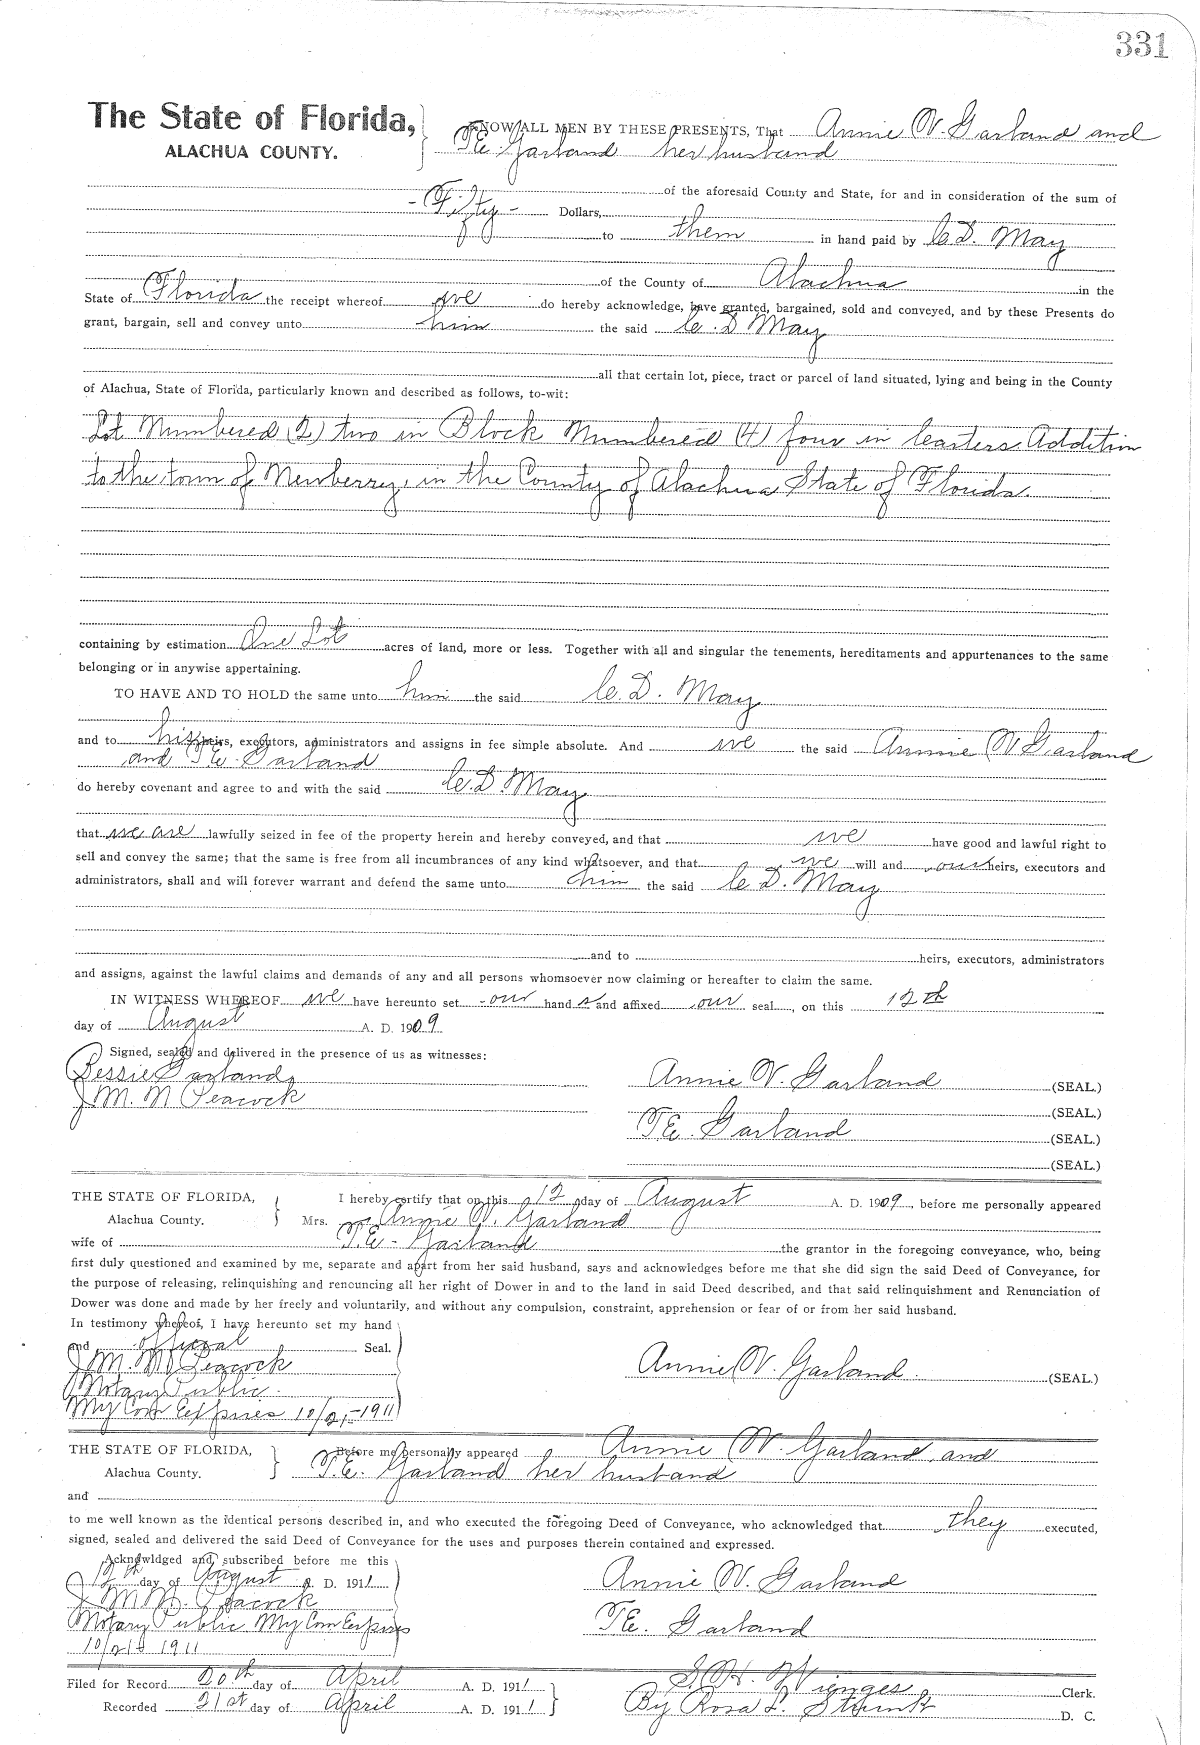 331
The State of Florida,
ALACHUA COUNTY.
KNOW ALL MEN BY THESE PRESENTS, That Annie V. Garland and
T.E. Garland her husband
of the aforesaid County and State, for and in consideration of the sum of
- Fifty - Dollars,
to them in hand paid by C.D. May
of the County of Alachua in the
State of Florida the receipt whereof we do hereby acknowledge, have granted, bargained, sold and conveyed, and by these Presents do
grant, bargain, sell and convey unto him the said C. D May
all that certain lot, piece, tract or parcel of land situated, lying and being in the County
of Alachua, State of Florida, particularly known and described as follows, to-wit:
Lot Numbered (2) two in Block Numbered (4) four in Addition
to the town of Newberry, in the County of Alachua State of Florida.
containing by estimation One Lot acres of land, more or less. Together with all and singular the tenements, hereditaments and appurtenances to the same
belonging or in anywise appertaining.
TO HAVE AND TO HOLD the same unto him the said C. D. May
and to his heirs, executors, administrators and assigns in fee simple absolute. And we the said Annie V Garland
and T.E. Garland
do hereby covenant and agree to and with the said C. D. May
that we are lawfully seized in fee of the property herein and hereby conveyed, and that we have good and lawful right to
sell and convey the same; that the same is free from all incumbrances of any kind whatsoever, and that we will and our heirs, executors and
administrators, shall and will forever warrant and defend the same unto him the said C D. May
and to heirs, executors, administrators
and assigns, against the lawful claims and demands of any and all persons whomsoever now claiming or hereafter to claim the same.
IN WITNESS WHEREOF we have hereunto set our hand s and affixed our seal, on this 12th
day of August A. D. 1909
Signed, sealed and delivered in the presence of us as witnesses:
Bessie Garland
J M. M Peacock
Annie V. Garland (SEAL.)
(SEAL.)
T.E. Garland (SEAL.)
(SEAL.)
THE STATE OF FLORIDA,
Alachua County.
I hereby certify that on this 12 day of August A. D. 1909, before me personally appeared
Mrs. Annie V. Garland
wife of T.E. Garland the grantor in the foregoing conveyance, who, being
first duly questioned and examined by me, separate and apart from her said husband, says and acknowledges before me that she did sign the said Deed of Conveyance, for
the purpose of releasing, relinquishing and renouncing all her right of Dower in and to the land in said Deed described, and that said relinquishment and Renunciation of
Dower was done and made by her freely and voluntarily, and without any compulsion, constraint, apprehension or fear of or from her said husband.
In testimony whereof, I have hereunto set my hand
and official Seal.
J M. M Peacock
Notary Public.
My Com Expires 10/21-1911
Annie V. Garland. (SEAL.)
THE STATE OF FLORIDA,
Alachua County.
Before me personally appeared Annie V. Garland and
T.E. Garland her husband
and
to me well known as the identical persons described in, and who executed the foregoing Deed of Conveyance, who acknowledged that they executed,
signed, sealed and delivered the said Deed of Conveyance for the uses and purposes therein contained and expressed.
Acknwldged and subscribed before me this
12th day of August A. D. 1911
J M M. Peacock
Notary Public My Com Expires
1911
Annie V. Garland
T.E. Garland
Filed for Record 20th day of April A. D. 1911
Recorded 21st day of April A. D. 1911
S. H. Wienges Clerk.
By Rosa L. D. C.